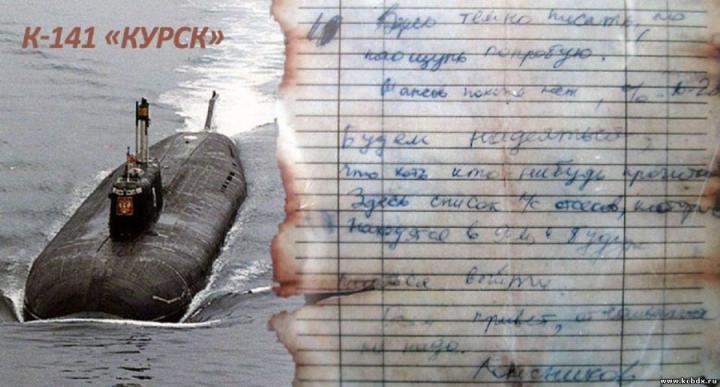 К-141 «КУРСК»
Здесь темно писать, но
наощупь попробую.
Шансов похоже нет, %
Будем надеяться,
что хоть кто нибудь прочита
Здесь список л/с отсеков,
находятся в 9-м и будут
выйти.
привет, отчаиваться
не надо.
Колесников
www.kchdx.ru